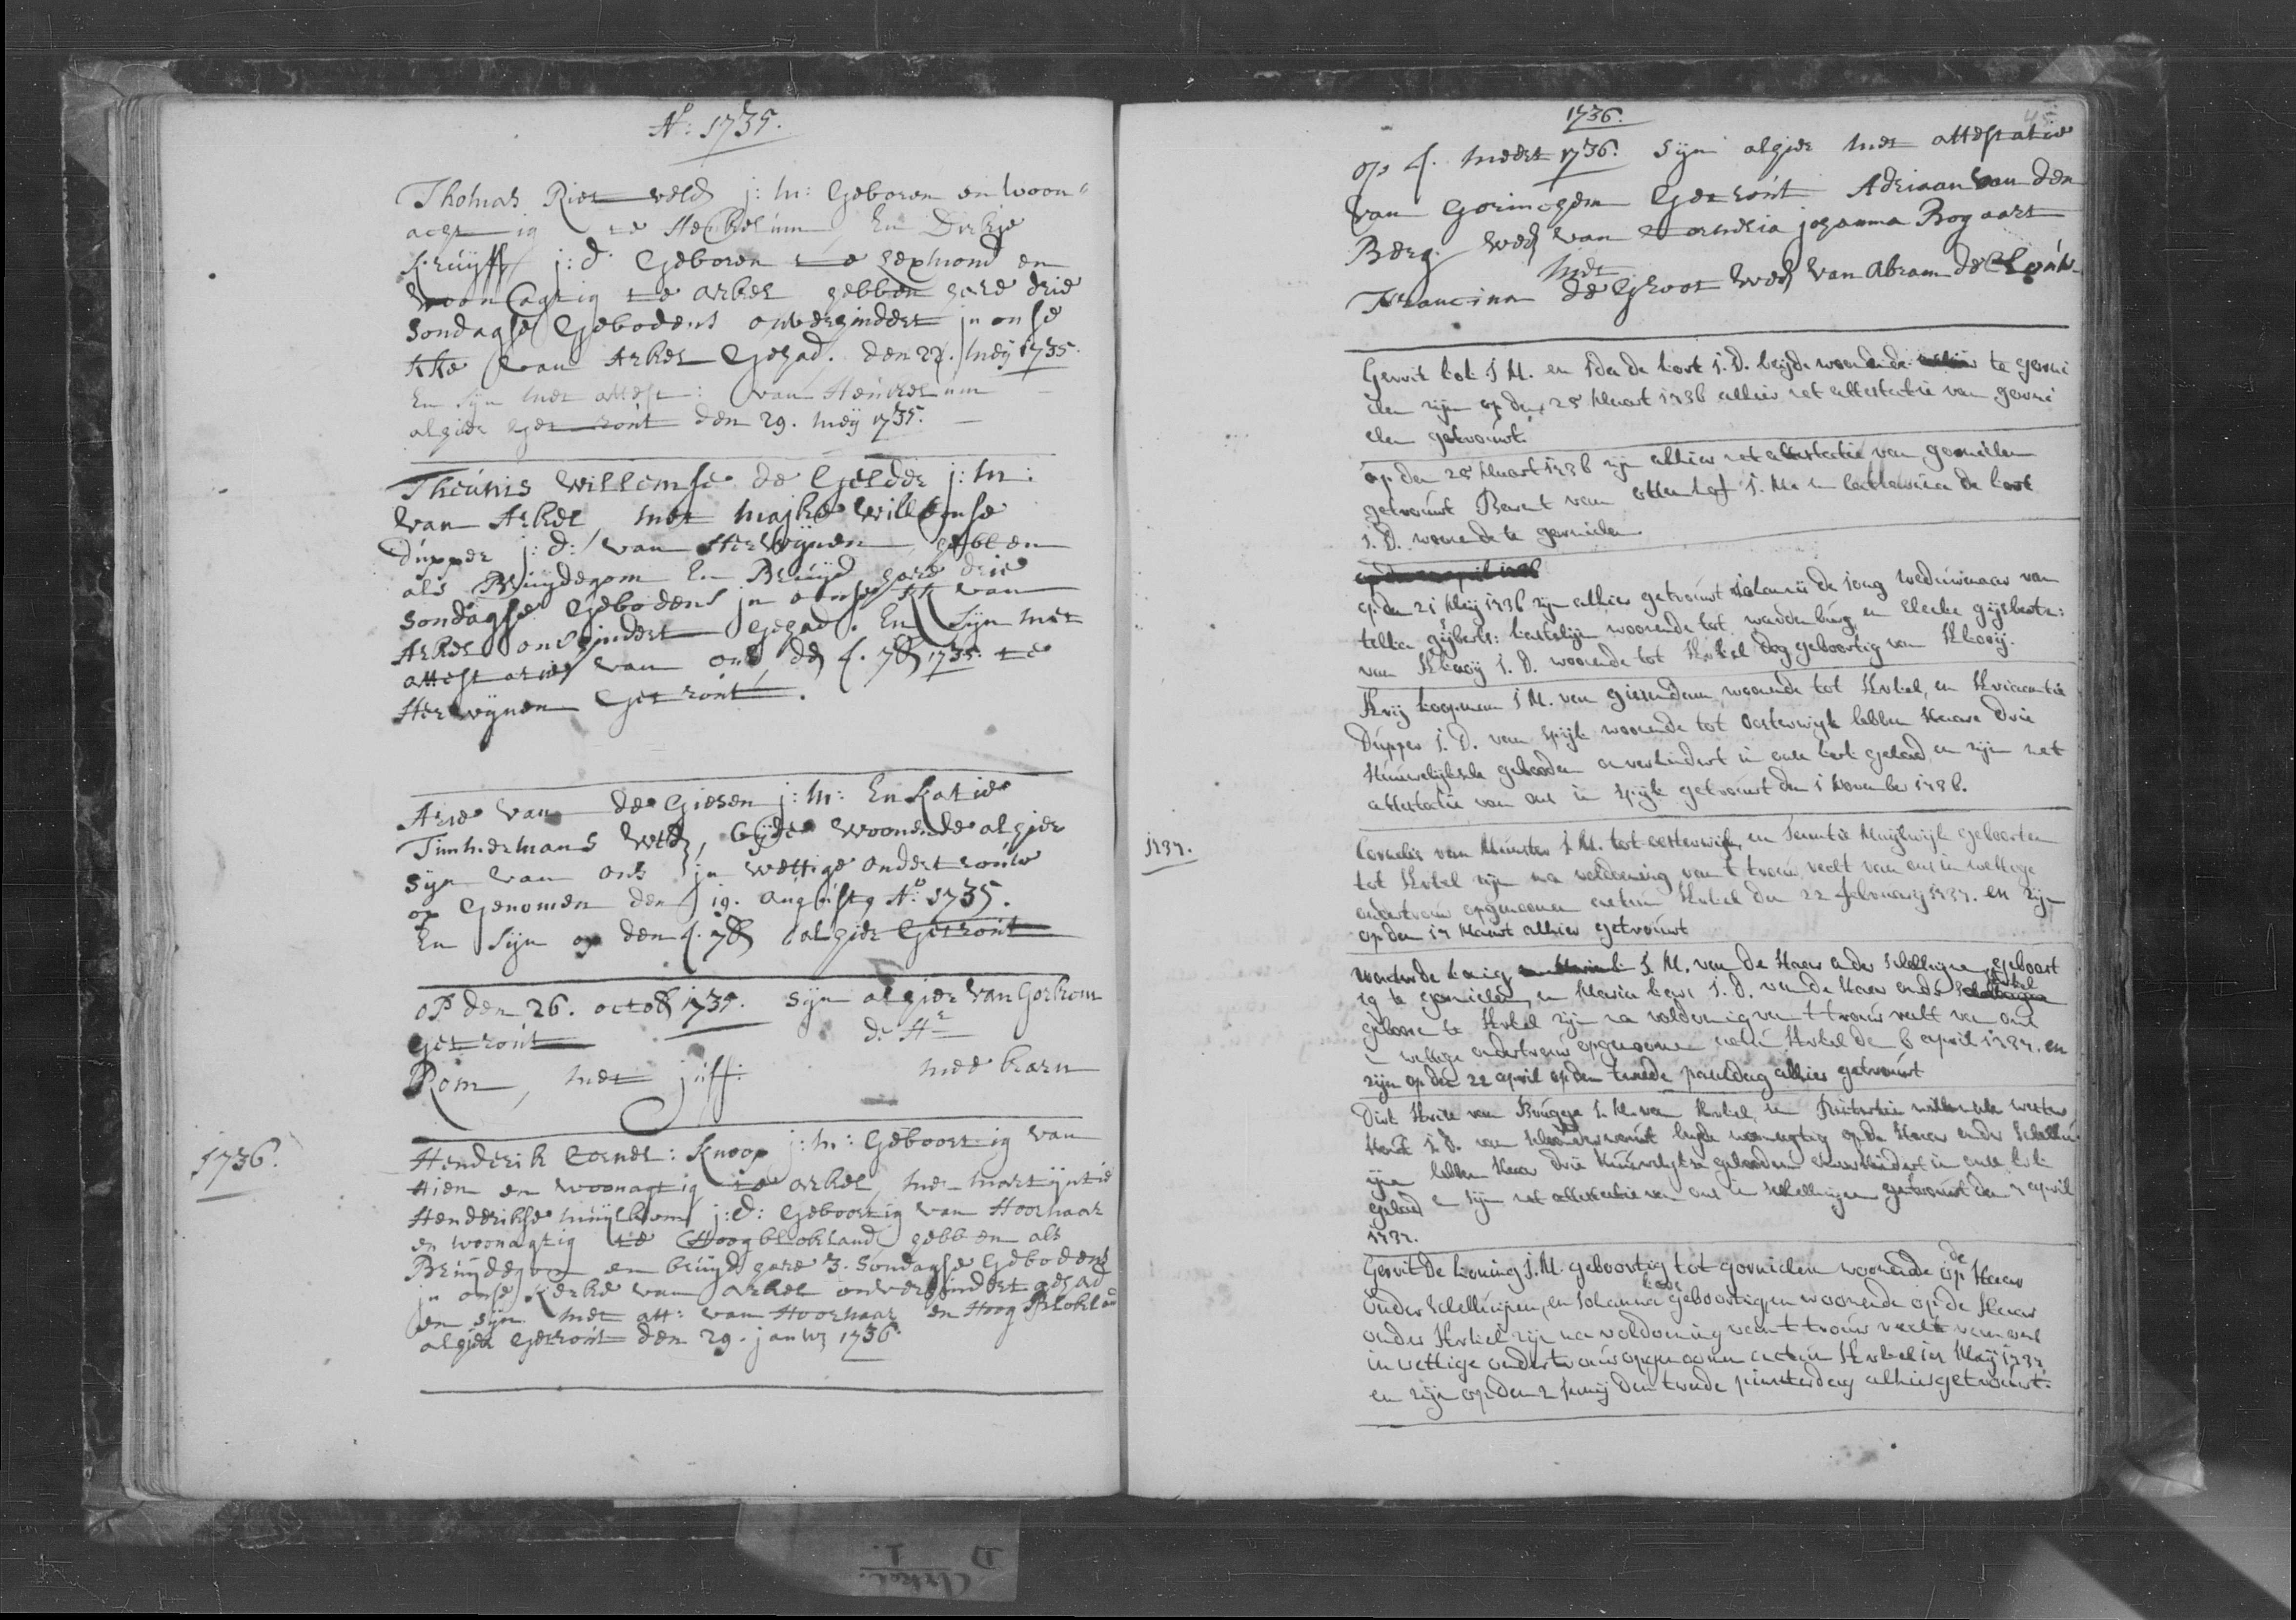 Ao: 1735.
Thomas Riet veld j: m: Geboren en woon=
achtig te Heukelum, En Dirkje
Kruijff j: d: Geboren te Lexmond en
woonagtig te Arkel hebben hare drie
Sondagse Gebodens onverhindert in onse
Kke van Arkel Gehad. den 22. meij 1735.
En sijn met attest: van Heukelum
alhier Getrout den 29. meij 1735.
Theunis Willemse de Gelder j: m:
van Arkel, met Majke Willemse
Dupper j: d: van Herwijnen, hebben
als Bruijdegom En Bruijd hare drie
Sondagse Gebodens in onse Kk van
Arkel onverhindert Gehad. En Sijn met
attestatie van ons de 4. 7b 1735. te
Herwijnen Getrout.
Arie van de Giesen j: m: En Katie
Timmermans Wed, beijde woonende alhier
sijn van ons in wettige ondertrouw
op Genomen den 19. augusty Ao: 1735.
En Sijn op den 4. 7b alhier Getrout
op den 26. octob 1735. sijn alhier van Gorkom
Getrout de Hr
Rom, met juff: mee
1736.
Henderik Cornel: Knoop j: m: Geboortig van
Hien en woonagtig te Arkel, met Martijntie
Henderikse j: d: Geboortig van Hoornaar
en woonagtig te Hoogblokland hebben als
Bruijdegom en bruijd hare 3. Sondagse Gebodens
in onse Kerke van Arkel onverhindert gehad
en sijn met att: van Hoornaar en Hoog Blokland
alhier Getrout den 29. janw 1736.
1736.
45
op 4. meert 1736. Sijn alhier met attestatie
van Gorinchem Getrout Adriaan van den
Berg. Wed van Cornelia johanna Bogaart
met
Francina de Groot Wed van Abram de
Gerrit kok J M. en Ida de kort J. D. beijde woonende te gorni
chem zijn op den 25 Maart 1736 alhier met attestatie van gorni
chem getrouwt.
op den 25 Maart 1736 zijn alhier met attestatie van
getrouwt Barent van J. M. en de kort
J. D. woonende te
op den 21 Meij 1736 zijn alhier getrouwt de jong weduwenaar van
woonende tot en
van J. D. woonende tot Arkel dog geboortig van
Arij koopman J M. van giesendam, woonende tot Arkel, en
Dupper J. D. van spijk woonende tot Oosterwijk hebben Haare drie
Huuwelijkse gebooden onverhindert in onse kerk gehad, en zijn met
attestatie van ons in spijk getrouwt den 1 November 1736.
1737.
Cornelis van Munster J. M. tot oosterwijk, en Muijlwijk gebooren
tot Arkel zijn na voldoening van t trouw recht van ons in wettige
ondertrouw opgenomen actum Arkel den 22 februarij 1737. en zijn
op den 17 Maart alhier getrouwt
Wouter de J. M. van de Haar onder Schelluijne, geboort
ig te en Maria J. D. van de Haar onder Arkel
gebooren te Arkel zijn na voldoening van t trouw recht van ons
in wettige ondertrouw opgenoomen actum Arkel den 6 april 1737. en
zijn op den 22 april op den tweede paasdag alhier getrouwt
Dirk van Brugge J. M. van Arkel, en
J. D. van beijde woonagtig op de Haar onder Schellui
ijne hebben Haar drie Huuwelijkse gebooden onverhindert in onse kerk
gehad en zijn met attestatie van ons in Schelluijnen getrouwt den april
1737.
Gerrit de koning J. M. geboortig tot gornichem woonende op de Haar
onder Schelluijnen, en Johanna geboortig en woonende op de Haar
onder Arkel zijn na voldoening van t trouw recht van ons
in wettige ondertrouw opgenomen actum Arkel Maij 1737
en zijn op den Junij den tweede pinxterdag alhier getrouwt.
Arkel.
D I.